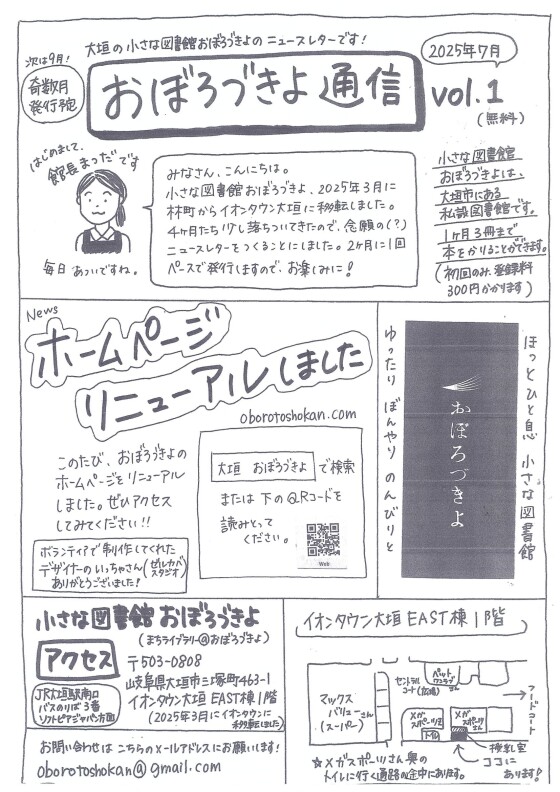 大垣の小さな図書館おぼろづきよのニュースレターです!
次は9月!
奇数月
発行予定
おぼろづきよ通信
2025年7月
vol.1
(無料)
はじめまして、
館長まつだです
毎日 あついですね。
みなさん、こんにちは。
小さな図書館おぼろづきよ、2025年3月に
林町からイオンタウン大垣に移転しました。
4ヶ月たち少し落ちついてきたので、念願の(?)
ニュースレターをつくることにしました。2ヶ月に1回
ペースで発行しますので、お楽しみに!
小さな図書館
おぼろづきよは、
大垣市にある
私設図書館です。
1ヶ月3冊まで
本をかりることができます。
(初回のみ、登録料
300円かかります)
News
ホームページ
リニューアルしました
oborotoshokan.com
このたび、おぼろづきよの
ホームページをリニューアル
しました。ぜひアクセス
してみてください!!
大垣 おぼろづきよ で検索
または 下のQRコードを
読みとって
ください。
Web
ボランティアで制作してくれた
デザイナーのいっちゃさん(ゼルカバスタジオ)
ありがとうございました!
ほっとひと息 小さな図書館
おぼろづきよ
ゆったり ぼんやり のんびりと
小さな図書館 おぼろづきよ
(まちライブラリー@おぼろづきよ)
アクセス
〒503-0808
岐阜県大垣市三塚町463-1
イオンタウン大垣 EAST棟1階
(2025年3月にイオンタウンに
移転しました)
JR大垣駅南口
バスのりば 3番
ソフトピアジャパン方面
お問い合わせは こちらのメールアドレスにお願いします!
oborotoshokan@gmail.com
イオンタウン大垣 EAST棟1階
マックス
バリューさん
(スーパー)
セントラル
コート(広場)
ペット
フードコート
メガ
スポーツさん
授乳室
ココに
あります!
☆メガスポーツさん奥の
トイレに行く通路の途中にあります。